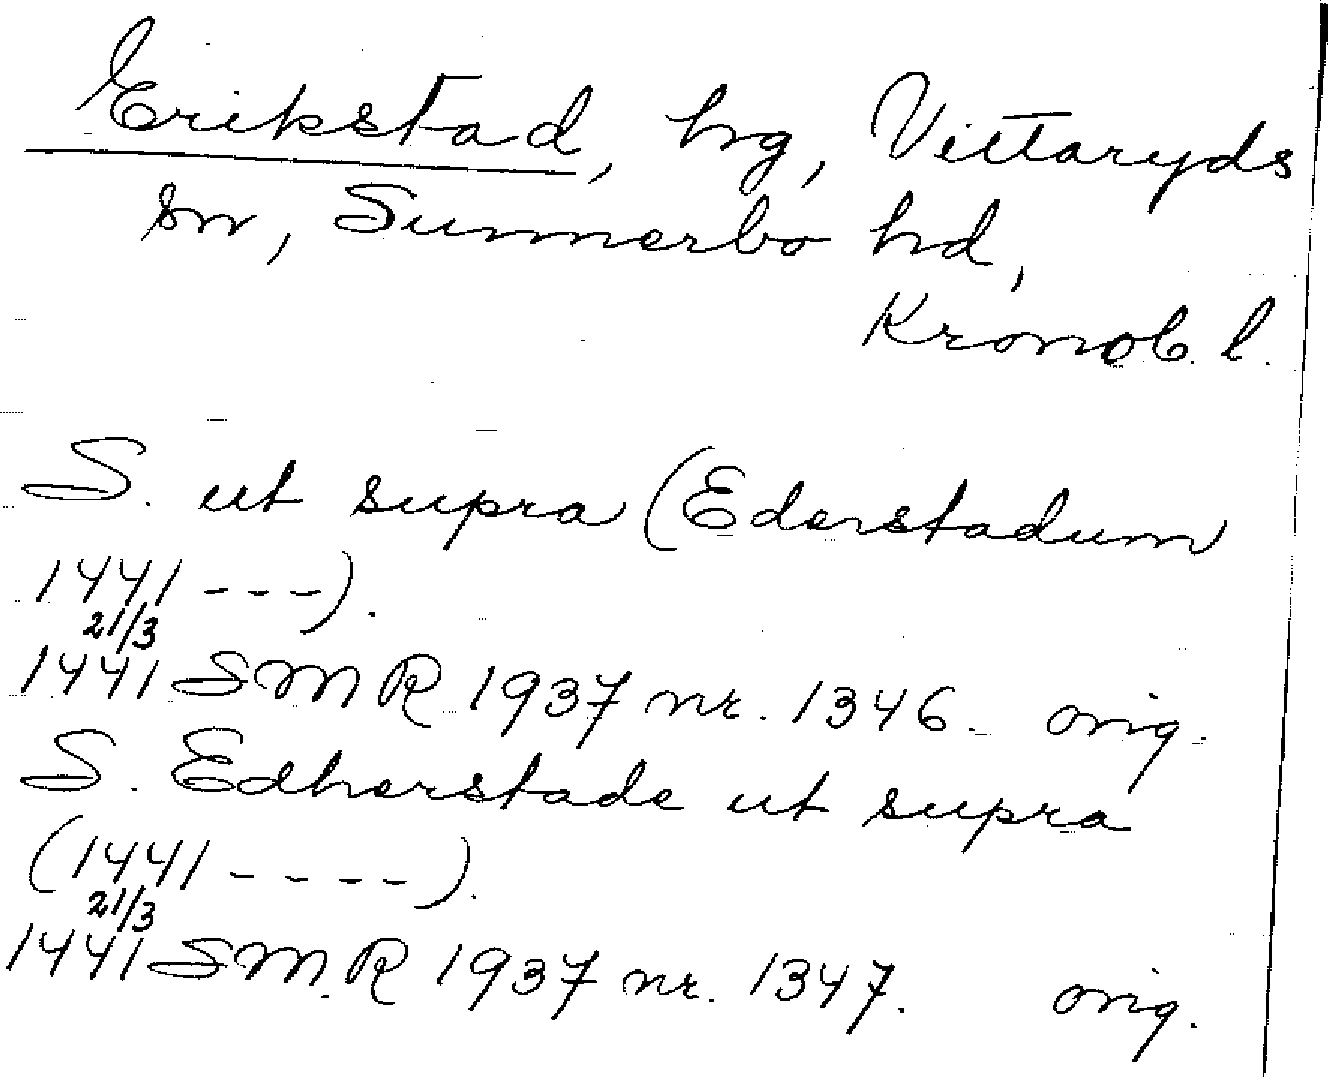 Erikstad, hg, Vittaryds
sn, Sunnerbo hd,
Kronob. l.
S. ut supra (Ederstadum
1441 ---).
21/3
1441 SMR 1937 nr. 1346. orig.
S. Edherstade ut supra
(1441 ----).
21/3
1441 SMR 1937 nr. 1347. orig.